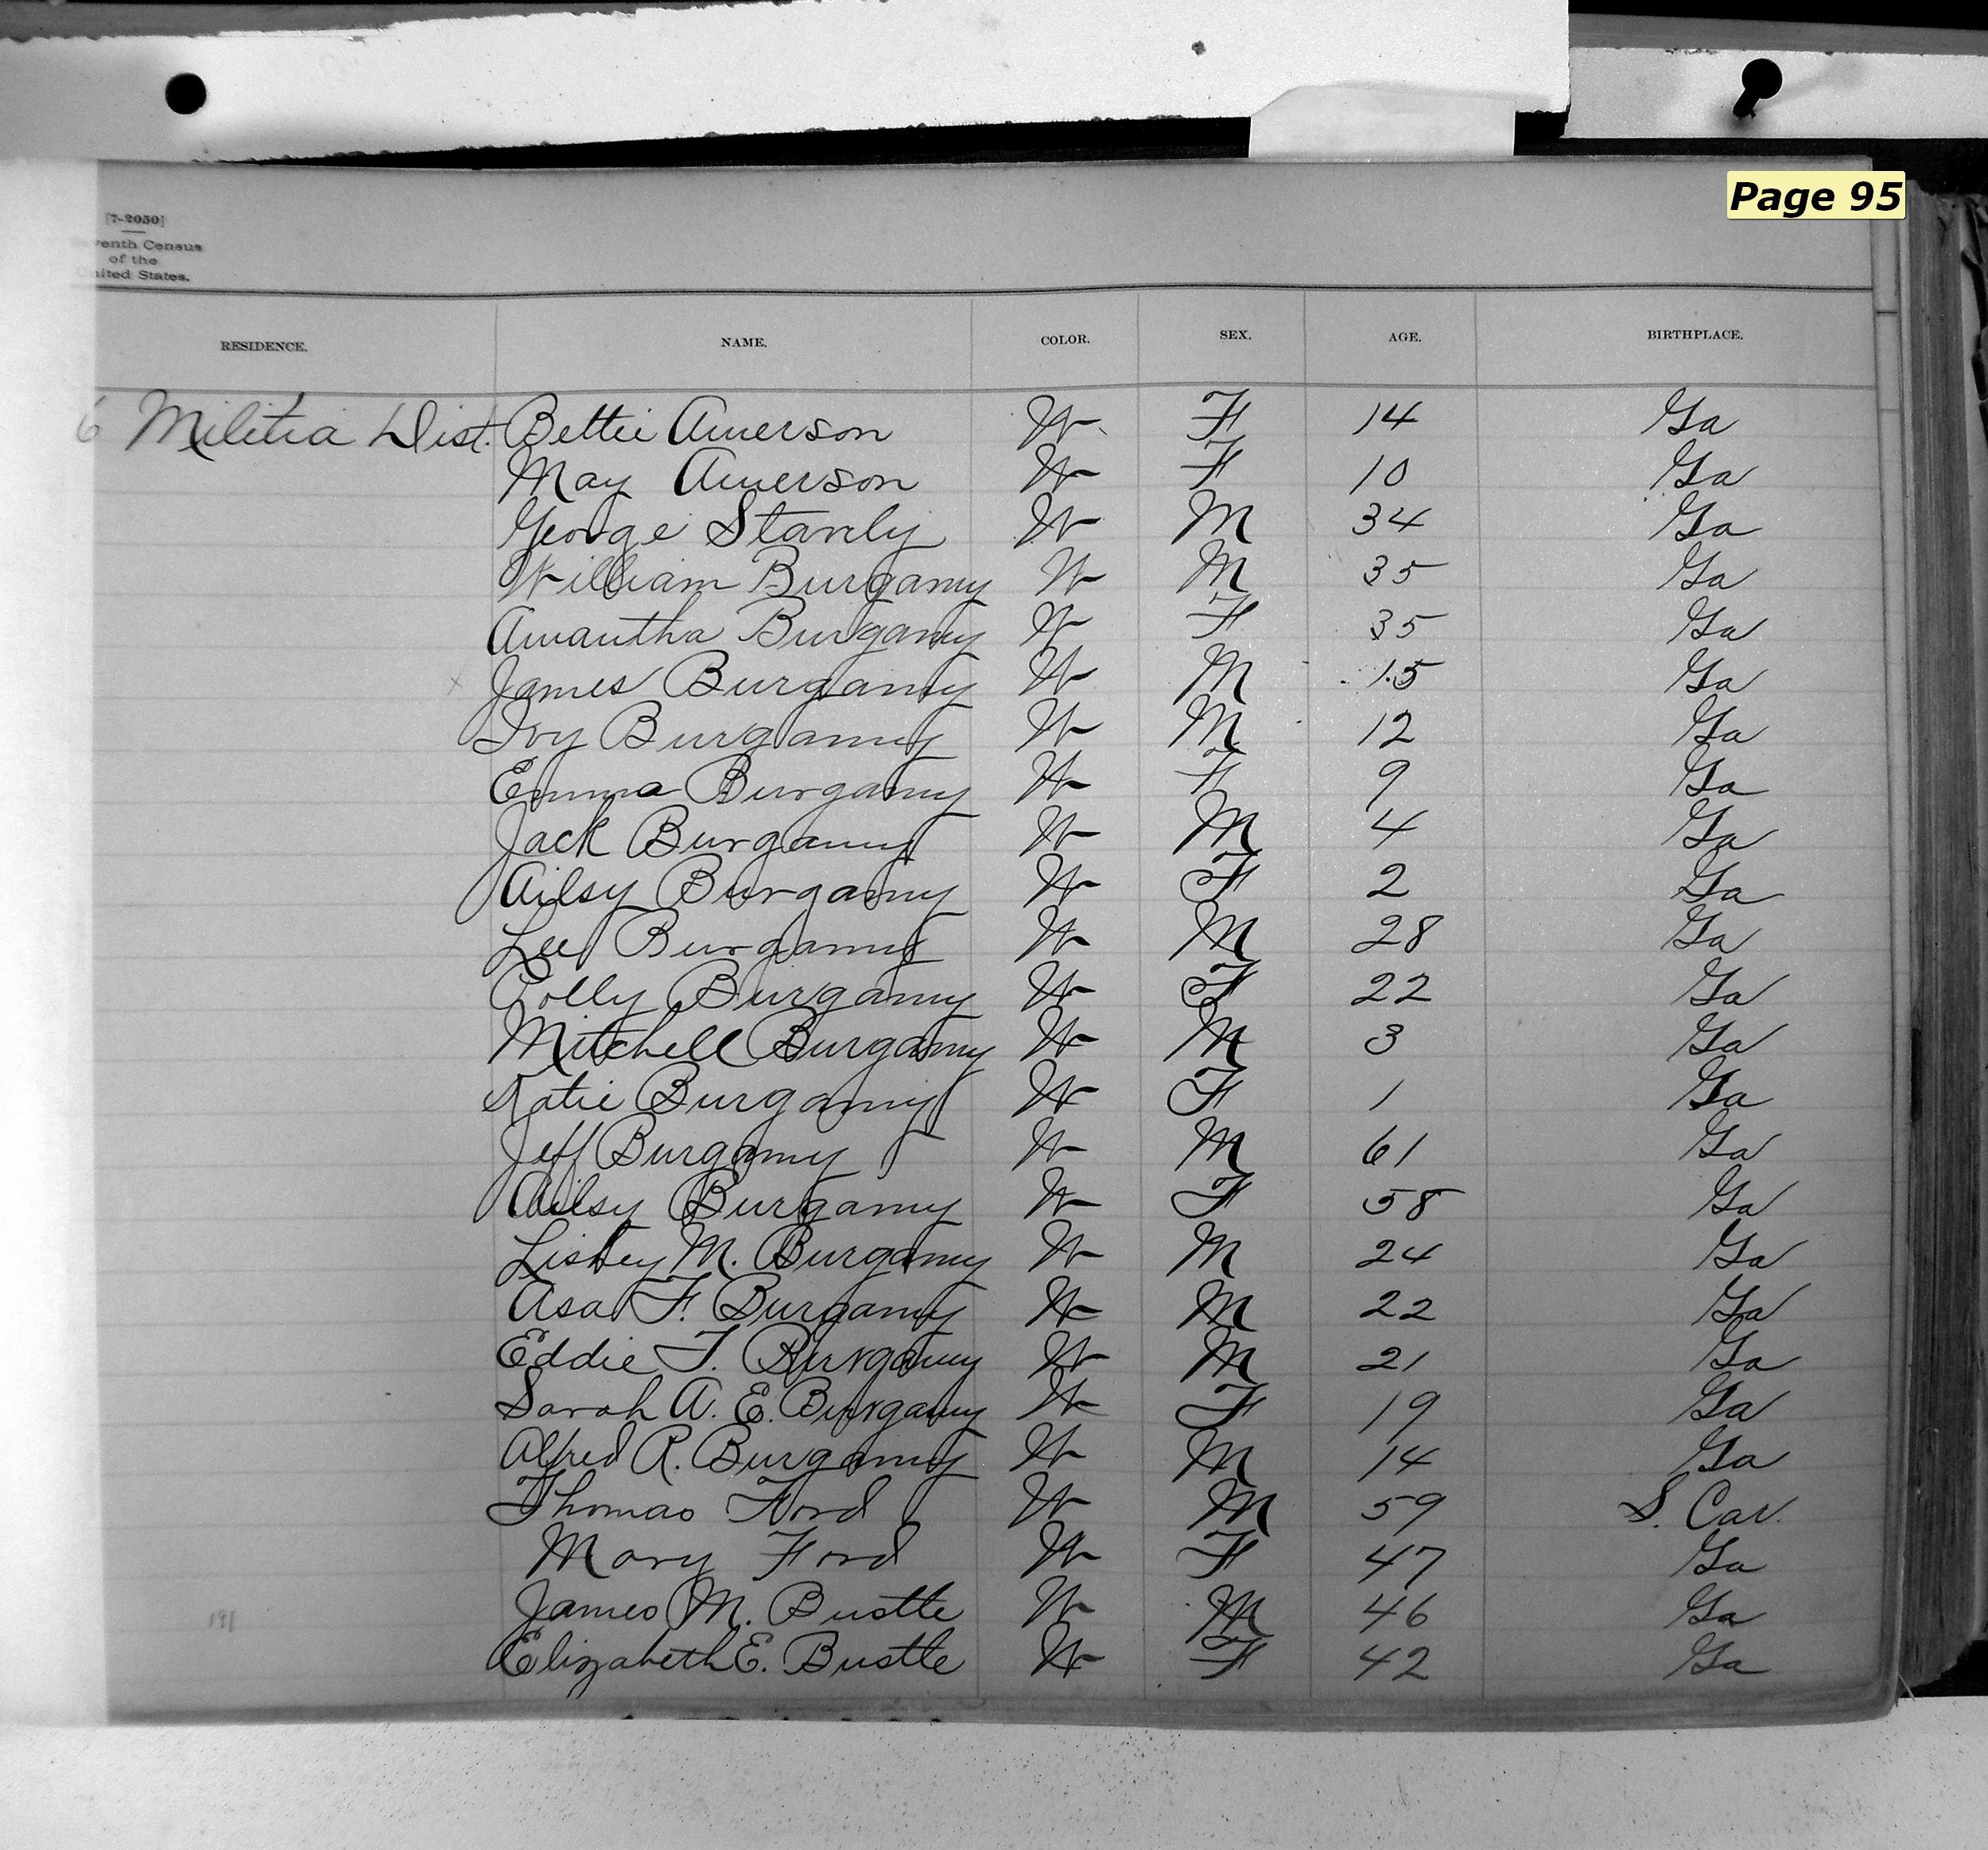 Page 95
[7-2050]
venth Census
of the
United States.
RESIDENCE. NAME. COLOR. SEX. AGE. BIRTHPLACE.
6 Militia Dist. Bettie Amerson W F 14 Ga
May Amerson W F 10 Ga
George Stanly W M 34 Ga
William Burgamy W M 35 Ga
Amantha Burgamy W F 35 Ga
James Burgamy W M 15 Ga
Ivy Burgamy W M 12 Ga
Emma Burgamy W F 9 Ga
Jack Burgamy W M 4 Ga
Ailsy Burgamy W F 2 Ga
Lee Burgamy W M 28 Ga
Polly Burgamy W F 22 Ga
Mitchell Burgamy W M 3 Ga
Katie Burgamy W F 1 Ga
Jeff Burgamy W M 61 Ga
Ailsy Burgamy W F 58 Ga
Lishey M. Burgamy W M 24 Ga
Asa F. Burgamy W M 22 Ga
Eddie T. Burgamy W M 21 Ga
Sarah A. E. Burgamy W F 19 Ga
Alfred R. Burgamy W M 14 Ga
Thomas Ford W M 59 S. Car.
Mary Ford W F 47 Ga
James M. Bustle W M 46 Ga
Elizabeth E. Bustle W F 42 Ga